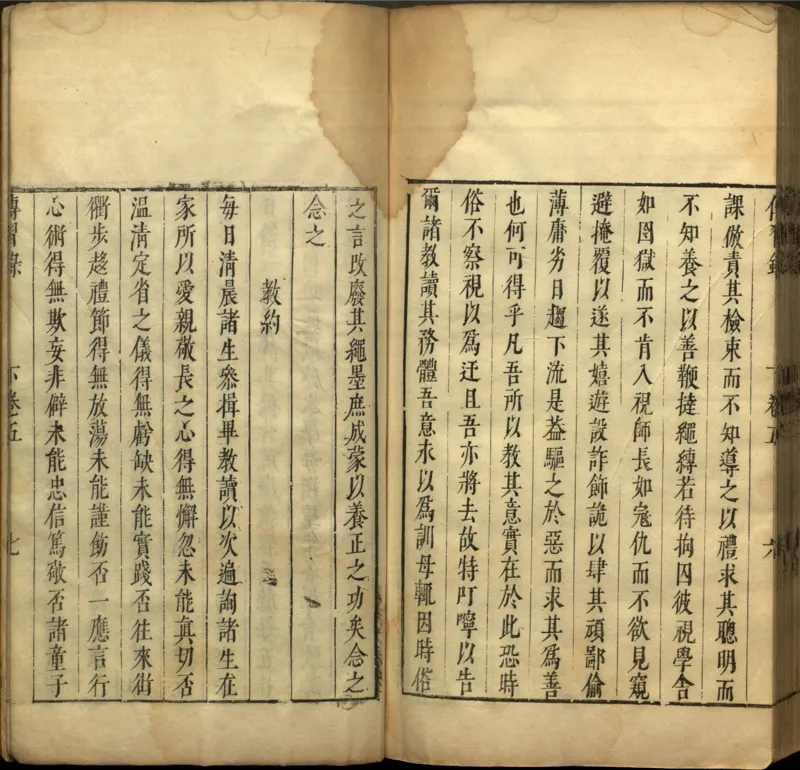 課倣責其檢束而不知導之以禮求其聰明而
不知養之以善鞭撻繩縛若待拘囚彼視學舍
如囹獄而不肯入視師長如寇仇而不欲見窺
避掩覆以遂其嬉遊設詐飾詭以肆其頑鄙偷
薄庸劣日趨下流是葢驅之於惡而求其爲善
也何可得乎凡吾所以教其意實在於此恐時
俗不察視以爲迂且吾亦將去故特叮嚀以告
爾諸教讀其務體吾意永以爲訓毋輒因時俗
之言改廢其繩墨庶成蒙以養正之功矣念之
念之
教約
每日清晨諸生叅揖畢教讀以次遍詢諸生在
家所以愛親敬長之心得無懈忽未能眞切否
温凊定省之儀得無虧缺未能實踐否往來街
衢步趍禮節得無放蕩未能謹飭否一應言行
心術得無欺妄非僻未能忠信篤敬否諸童子
傳習錄 下卷五 七